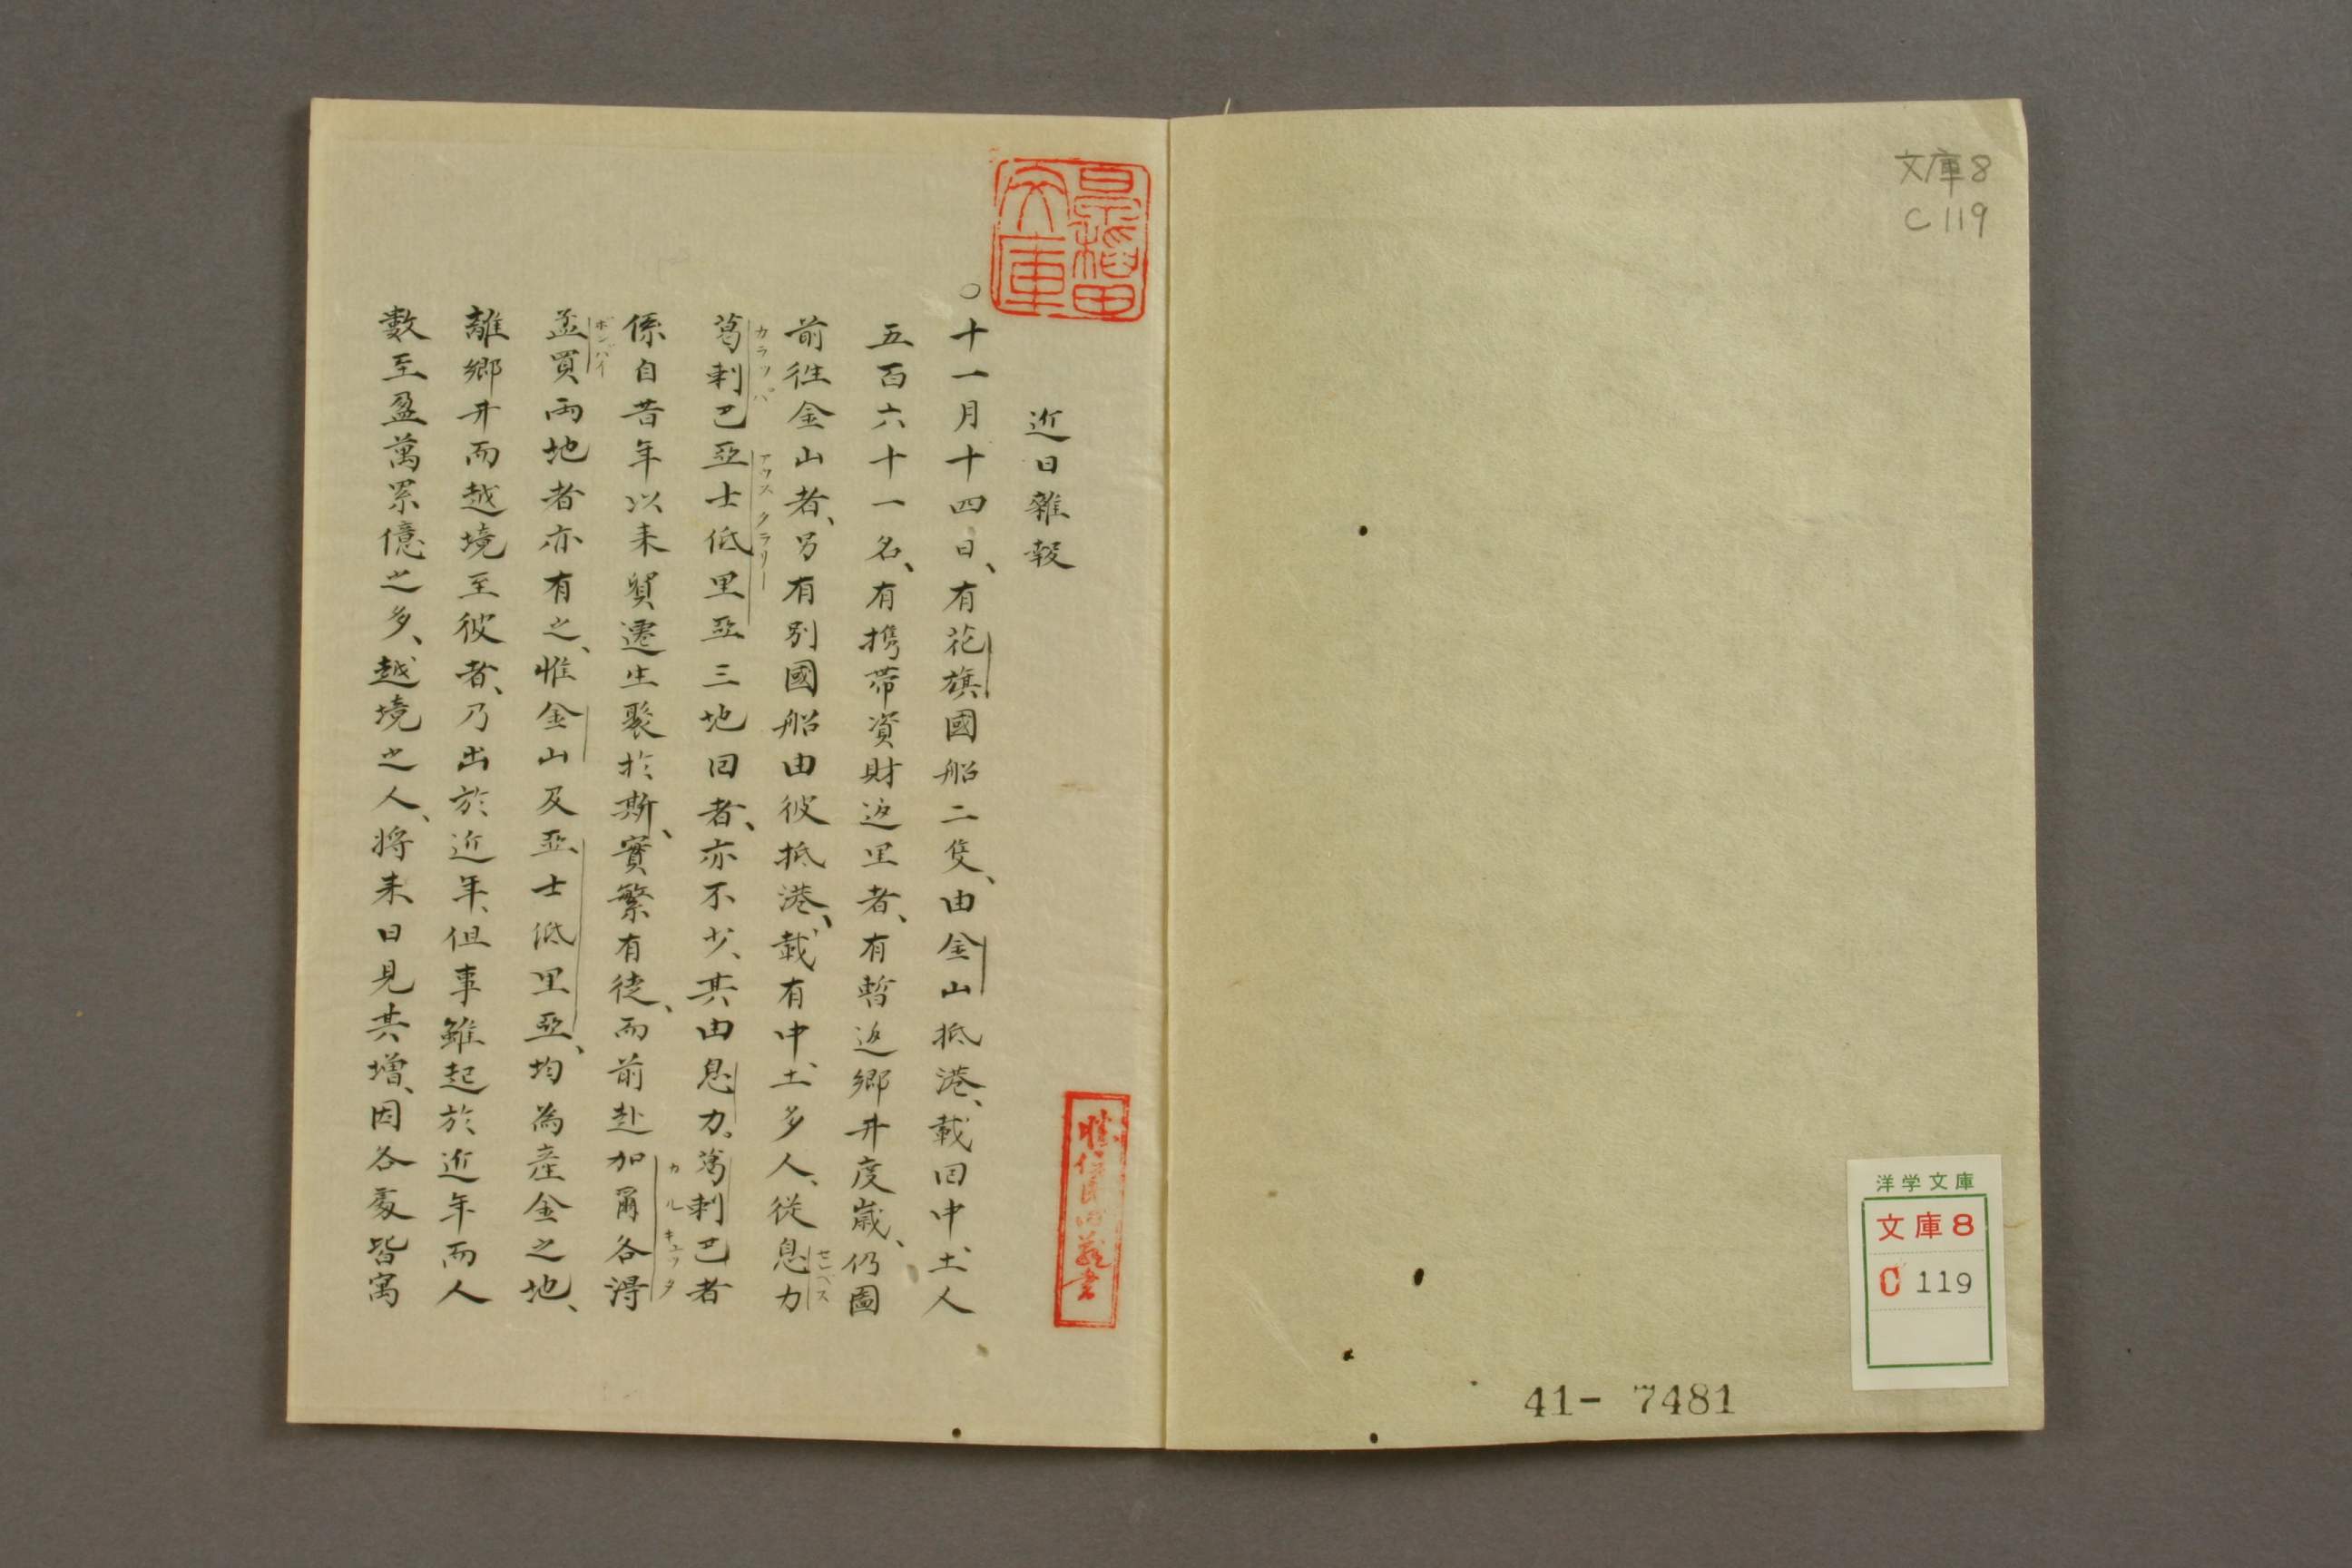 文庫8
C 119
洋学文庫
文庫8
C 119
41- 7481
早稲田
文庫
近日雜報
○十一月十四日、有花旗國船二隻、由金山抵港、載回中土人
五百六十一名、有携帯資財返里者、有暫返鄉井度歲、仍圖
前徃金山者、另有別國船由彼抵港、載有中土多人、從息力
セレベス
葛剌巴亞士低里亞三地回者、亦不少、其由息力。葛剌巴者
カラッパ アウスタラリー
係自昔年以来貿遷生聚於斯、實繁有徒、而前赴加爾各得
カルキュッタ
孟買両地者亦有之、惟金山及亞士低里亞、均為産金之地、
ボンバイ
離鄉井而越境至彼者、乃出於近年、但事雖起於近年而人
數至盈萬累億之多、越境之人、将来日見其增、因各處皆寓